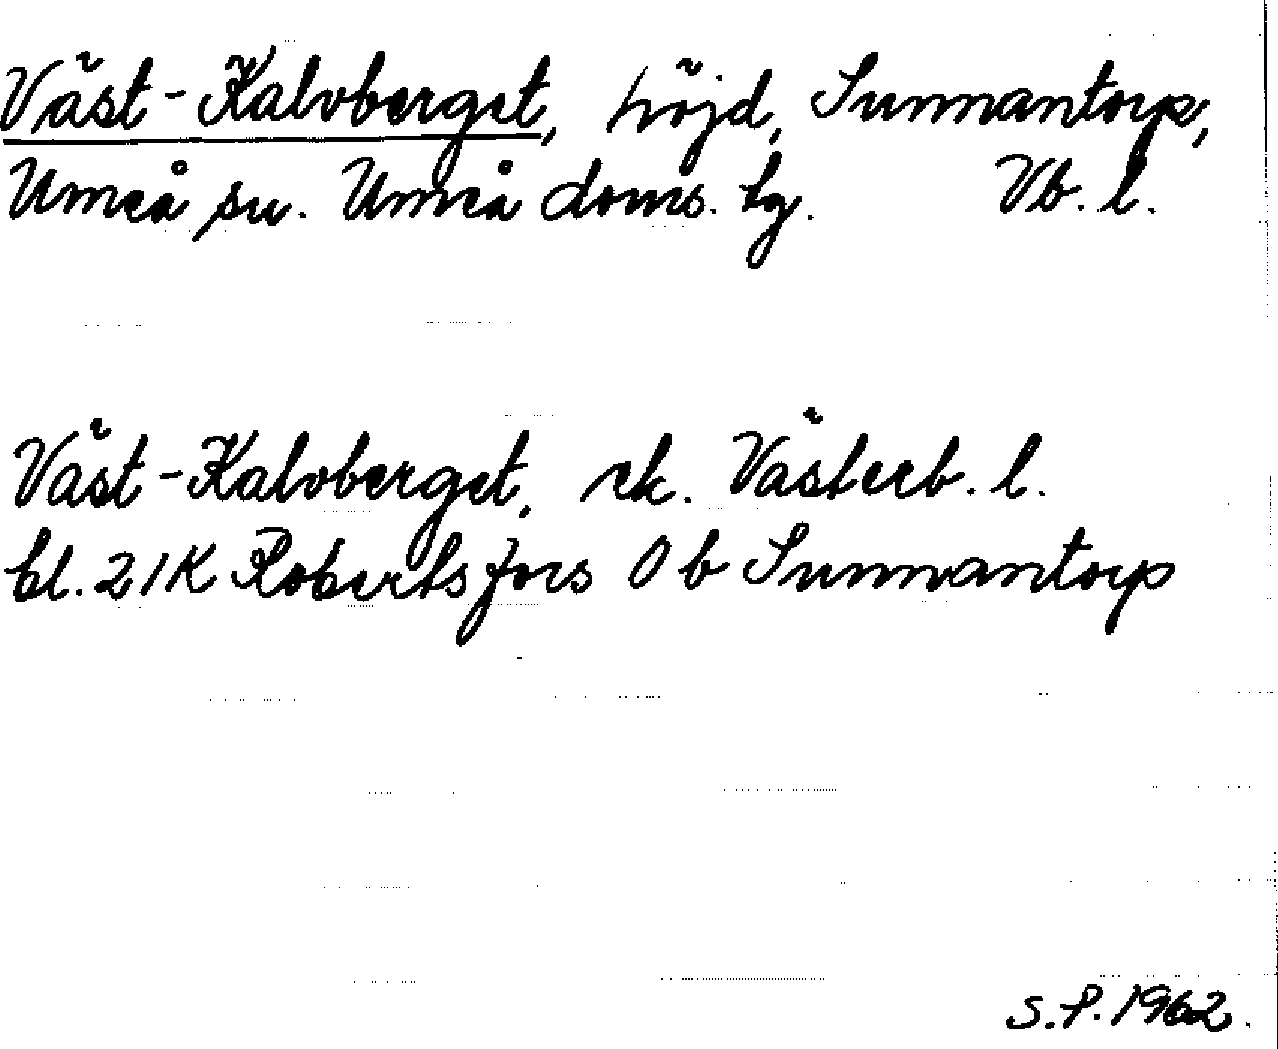 Väst-Kalvberget, höjd, Sunnantorp,
Umeå sn. Umeå doms. tg. Vb. l.
Väst-Kalvberget, ek. Västerb. l.
bl. 21K Robertsfors 0 b Sunnantorp
S.P. 1962.